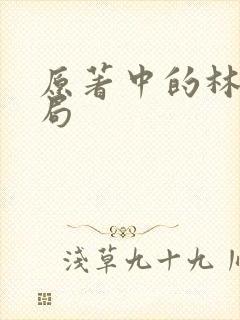 原著中的林
局
浅草九十九